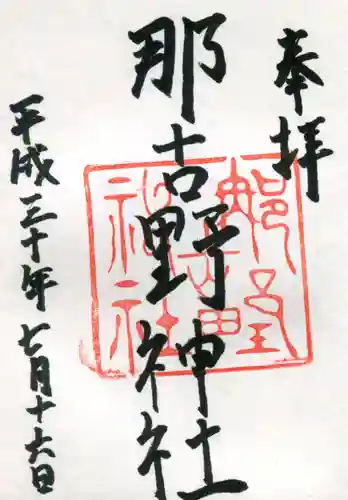 奉拝
那古野神社
平成三十年七月十六日
那古野神社